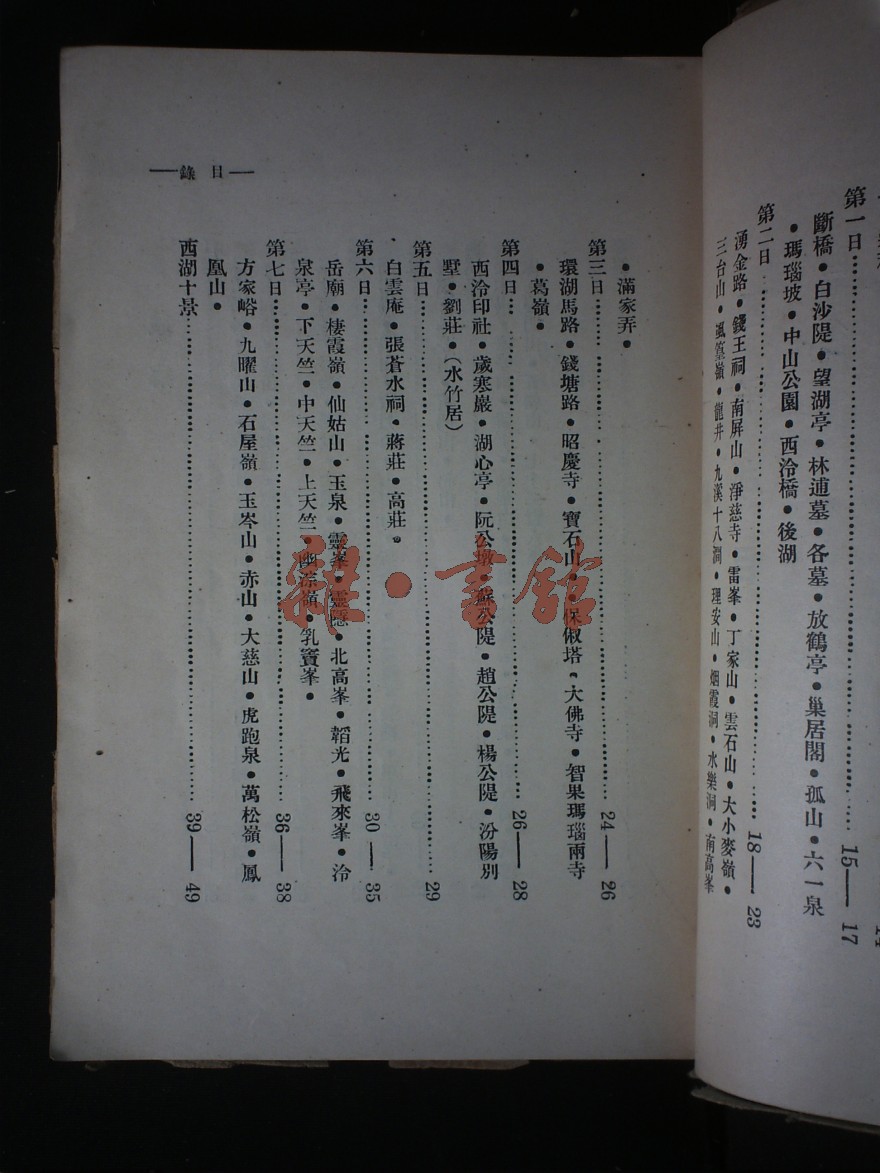 第一日 15——17
斷橋•白沙隄•望湖亭•林逋墓•各墓•放鶴亭•巢居閣•孤山•六一泉
•瑪瑙坡•中山公園•西泠橋•後湖
第二日 18——23
湧金路•錢王祠•南屏山•淨慈寺•雷峯•丁家山•雲石山•大小麥嶺•
三台山•風篁嶺•龍井•九溪十八澗•理安山•烟霞洞•水樂洞•南高峯
——目錄——
•滿家弄•
第三日 24——26
環湖馬路•錢塘路•昭慶寺•寶石山•保俶塔•大佛寺•智果瑪瑙兩寺
•葛嶺•
第四日 26——28
西泠印社•歲寒巖•湖心亭•阮公墩•蘇公隄•趙公隄•楊公隄•汾陽別
墅•劉莊•(水竹居)
第五日 29
•白雲庵•張蒼水祠•蔣莊•高莊。
第六日 30——35
岳廟•棲霞嶺•仙姑山•玉泉•靈峯•靈隱•北高峯•韜光•飛來峯•泠
泉亭•下天竺•中天竺•上天竺•幽淙嶺•乳竇峯•
第七日 36——38
方家峪•九曜山•石屋嶺•玉岑山•赤山•大慈山•虎跑泉•萬松嶺•鳳
凰山•
西湖十景 39——49
雜•書館